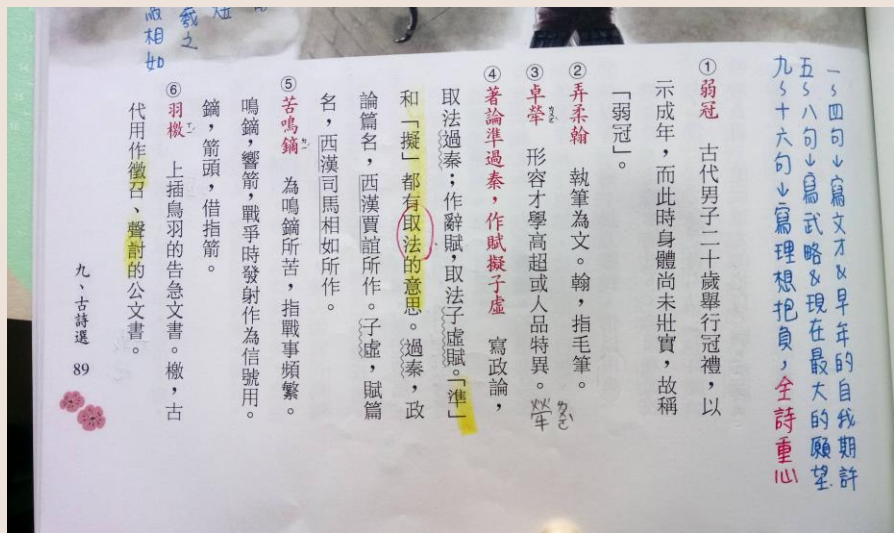 一~四句↓寫文才&早年的自我期許
五~八句↓寫武略&現在最大的願望
九~十六句↓寫理想抱負,全詩重心
①弱冠 古代男子二十歲舉行冠禮,以
示成年,而此時身體尚未壯實,故稱
「弱冠」。
②弄柔翰 執筆為文。翰,指毛筆。
③卓犖 形容才學高超或人品特異。犖
④著論準過秦,作賦擬子虛 寫政論,
取法過秦;作辭賦,取法子虛賦。「準」
和「擬」都有取法的意思。過秦,政
論篇名,西漢賈誼所作。子虛,賦篇
名,西漢司馬相如所作。
⑤苦鳴鏑 為鳴鏑所苦,指戰事頻繁。
鳴鏑,響箭,戰爭時發射作為信號用。
鏑,箭頭,借指箭。
⑥羽檄 上插鳥羽的告急文書。檄,古
代用作徵召、聲討的公文書。
羲之
相如
九、古詩選 89